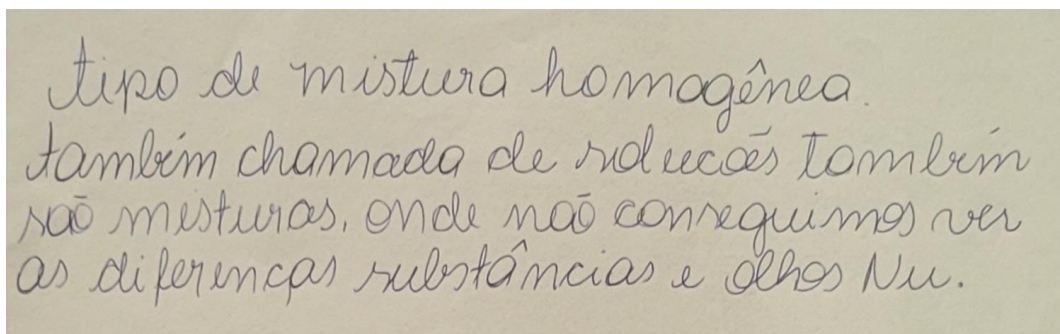 tipo de mistura homogênea.
também chamada de solucões também
são misturas, onde não conseguimos ver
as diferenças substâncias e olhos Nu.